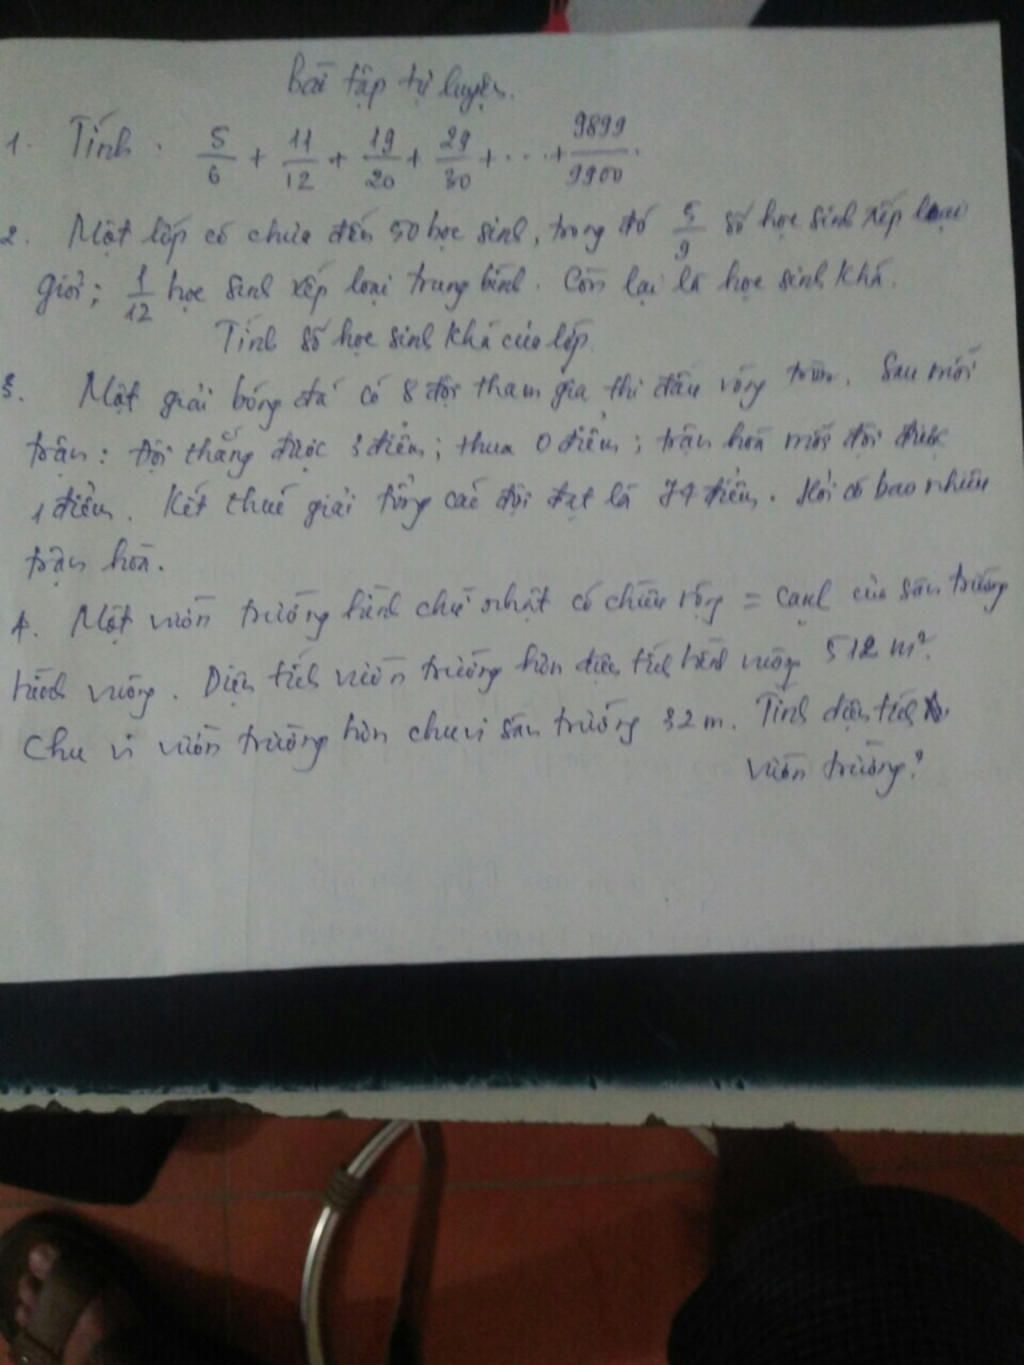 Bài tập tự luyện.
1. Tính. 5/6 + 11/12 + 19/20 + 29/30 + ... + 9899/9900.
2. Một lớp có chưa đến 50 học sinh, trong đó 5/9 số học sinh xếp loại
giỏi; 1/12 học sinh xếp loại trung bình. Còn lại là học sinh khá.
Tính số học sinh khá của lớp.
3. Một giải bóng đá có 8 đội tham gia thi đấu vòng tròn. Sau mỗi
trận: Đội thắng được 3 điểm; thua 0 điểm; trận hoà mỗi đội được
1 điểm. Kết thúc giải tổng các đội đạt là 74 điểm. Hỏi có bao nhiêu
trận hoà.
4. Một vườn trường hình chữ nhật có chiều rộng = cạnh của sân trường
hình vuông. Diện tích vườn trường hơn diện tích hình vuông 512 m².
Chu vi vườn trường hơn chu vi sân trường 32 m. Tính diện tích
vườn trường?